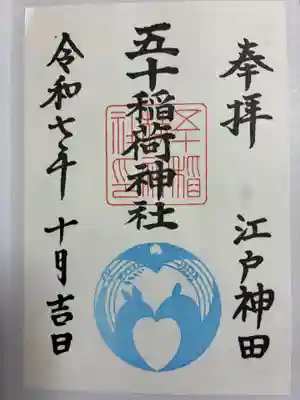 奉拝
江戸神田
五十稲荷神社
令和七年 十月吉日